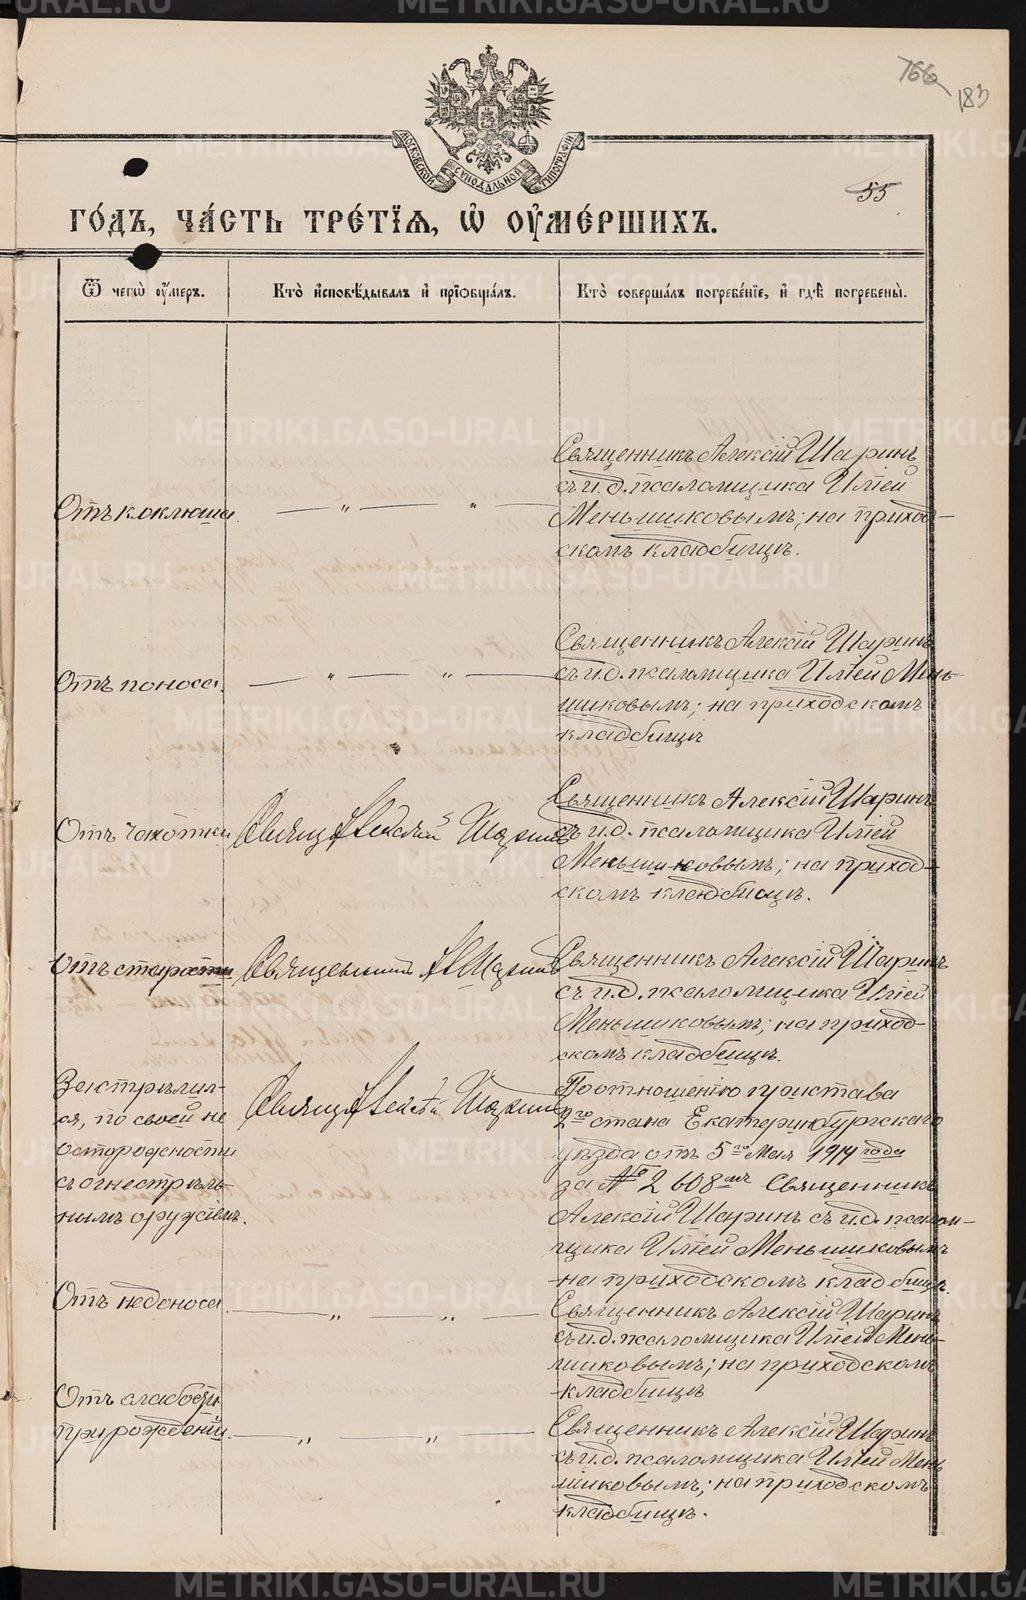 766
183
МОСКОВСКОЙ СѴНОДАЛЬНОЙ ТИПОГРАФІИ
55
ГО́ДЪ, ЧА́СТЬ ТРЕ́ТІѦ, Ѡ҆ ОУ҆МЕ́РШИХЪ.
Ѿ чегѡ̀ оу҆́меръ.
Кто̀ и҆сповѣ́дывалъ и҆ прїѡбща́лъ.
Кто̀ соверша́лъ погребе́нїе, и҆ гдѣ̀ погребены̀.
Отъ коклюша.
— „ — „ —
Священникъ Алексій Шаринъ
съ и.д. псаломщика Иліей
Меньшиковымъ; на приход-
скомъ кладбищѣ.
Отъ поноса.
— „ — „ —
Священникъ Алексій Шаринъ
съ и.д. псаломщика Иліей Мень-
шиковымъ; на приходскомъ
кладбищѣ
Отъ чахотки
Священ. Алексѣй Шаринъ
Священникъ Алексій Шаринъ
съ и.д. псаломщика Иліей
Меньшиковымъ; на приход-
скомъ кладбищѣ.
Отъ старости
Священникъ А. Шаринъ
Священникъ Алексій Шаринъ
съ и.д. псаломщика Иліей
Меньшиковымъ; на приход-
скомъ кладбищѣ.
Застрѣлил-
ся, по своей не
осторожности
съ огнестрѣль-
нымъ оружіемъ.
Священ. Алексѣй Шаринъ
По отношенію пристава
2го стана Екатеринбургскаго
уѣзда отъ 5го Мая 1914 года
за № 2608мъ Священникъ
Алексій Шаринъ съ и.д. псалом-
щика Иліей Меньшиковымъ
на приходскомъ кладбищѣ.
Отъ недоноса.
— „ — „ —
Священникъ Алексій Шаринъ
съ и.д. псаломщика Иліей Мень-
шиковымъ; на приходскомъ
кладбищѣ
Отъ слабости
при рожденіи.
— „ — „ —
Священникъ Алексій Шаринъ
съ и.д. псаломщика Иліей Мень
шиковымъ; на приходскомъ
кладбищѣ.
METRIKI.GASO-URAL.RU